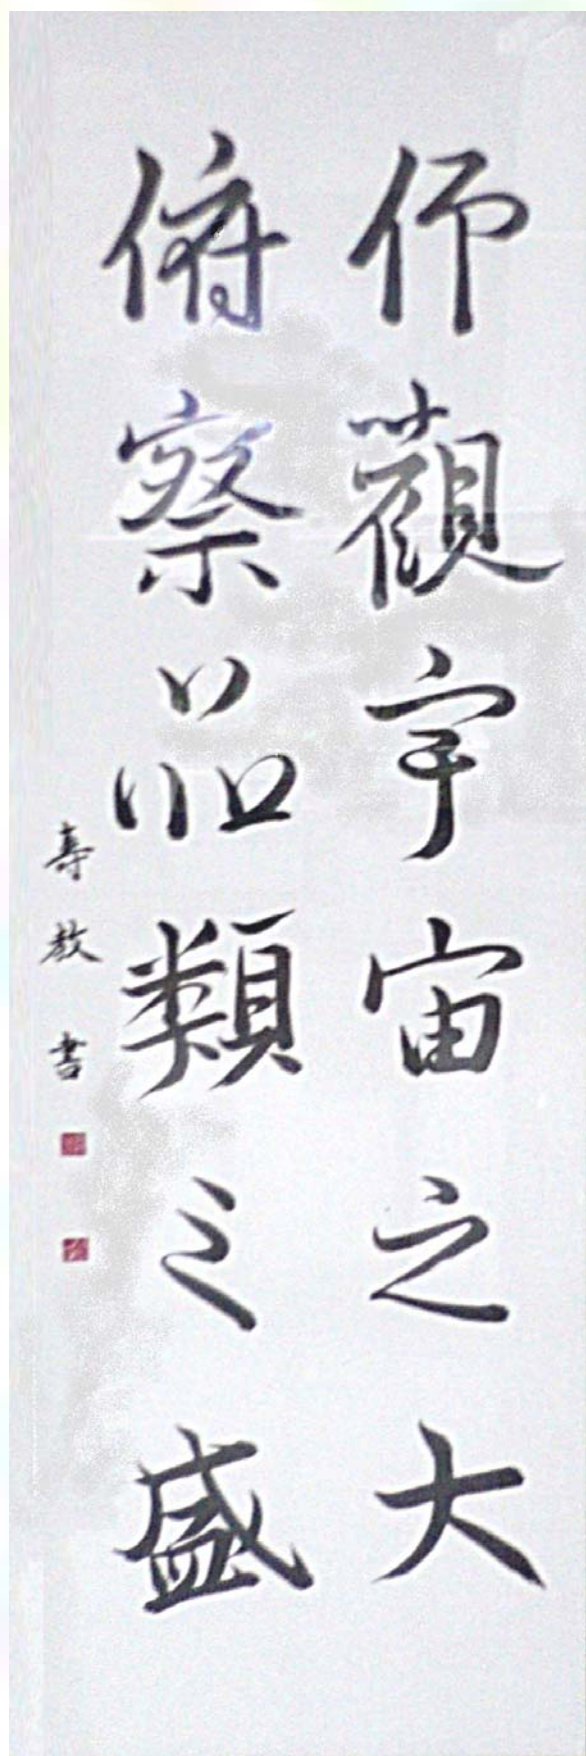 仰觀宇宙之大
俯察品類之盛
壽敖書